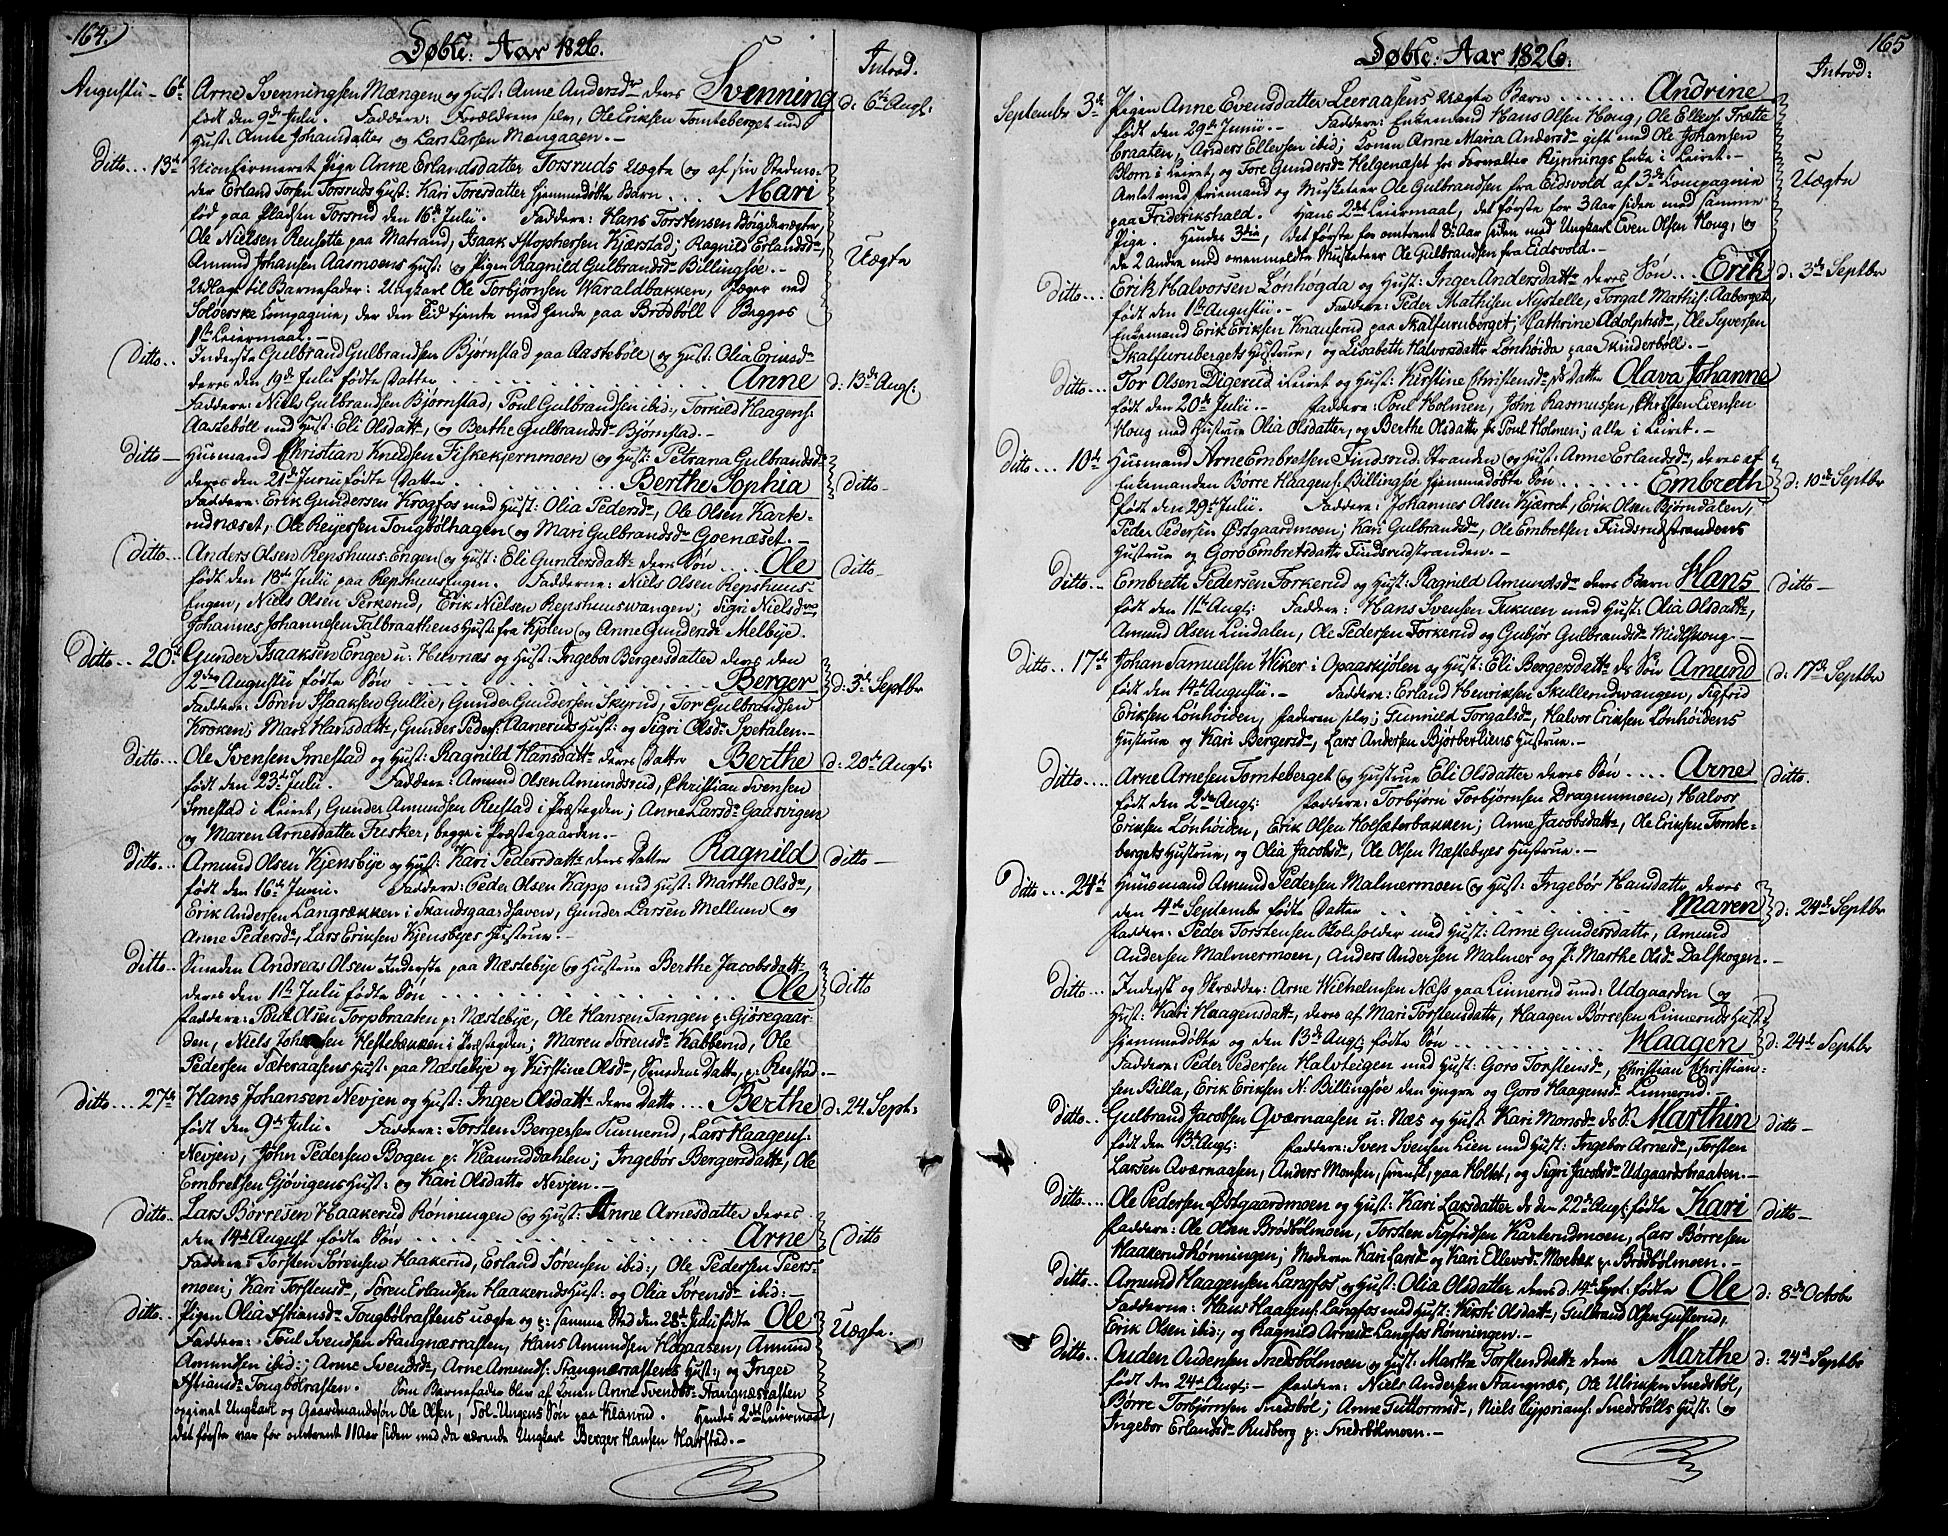 164.
Døbte: Aar 1826.
Introd.
Augustii - 6te Arne Svenningsen Mængen og Hust: Anne Andersdr deres Svenning d: 6te Augs:
født den 9de Julii. Faddere: Forældrene selv, Ole Eriksen Tomteberget med
Hust: Anne Johansdatter og Lars Larsen Mængaaen.
Ditto... 13de Uconfirmeret Pige Anne Erlandsdatter Torsruds Uægte og af sin Stedmo-
der Erland Torsruds Hust: Kari Toresdatter hjemmedøbte Barn ... Mari
fød paa Pladsen Torsrud den 16de Julii. Faddere: Hans Torstensen
Ole Nielsen Reusette paa Matrand, Isaak Kjærstad; Ragnild Erlandsdr,
Amund Johansen Aasmoens Hust: og Pigen Ragnild Gulbrandsdr Billingsøe.- Uægte
Udlagt til Barnefader: Ungkarl Ole Torbjørnsen Varaldbakken, Jæger ved
Soløerske Compagnie, der den Tid tjente med hende paa Brødbøll. Begges
1ste Leiermaal.-
Ditto.. Inderste Gulbrand Gulbrandsen Bjørnstad paa Aastebøle og Hust: Olia Eriksdr
deres den 19de Julii fødte Datter ... Anne d: 13de Augs:
Faddere: Niels Gulbrandsen Bjørnstad, Poul Gulbrandsen ibid:, Torkild Haagens:
Aastebøll med Hust: Eli Olsdatt:, og Berthe Gulbrandsdr Bjørnstad.-
Ditto- Husmand Christian Knudsen Fiskekjernmoen og Hust: Petrana Gulbrandsdr
deres den 21de Junii fødte Datter ... Berthe Sophia Ditto-
Faddere: Erik Gundersen Krogfos med Hust: Olia Pedersdr, Ole Olsen Karte-
rudnæset, Ole Reyersen Tougbølhagen og Mari Gulbrandsdr Goenæset.-
Ditto... Anders Olsen Repshuus-Engen og Hust: Eli Gundersdatt: deres Søn ... Ole Ditto-
født den 18de Julii paa RepshuusEngen. Fadderne: Niels Olsen Repshuus-
Engen, Niels Olsen Perkerud, Erik Nielsen Repshuuswangen; Sigri Nielsdr,
Johannes Johannesen Talbraathens Hust: fra Kjolen og Anne Gundersdr Melbye.
Ditto... 20de Gunder Isaaksen Enger u: Helvnæs og Hust: Ingebor Bergersdatter deres den
2den Augustii fødte Søn ... Berger d: 3de Septbr
Faddere: Søren Isaaksen Gullie, Gunder Gundersen Skyrud, Tor Gulbrandsen
Korsken; Mari Hansdatt:, Gunder Peders: Aaneruds Hust: og Sigri Olsdr Spetalen.-
Ditto... Ole Svensen Smestad og Hust: Ragnild Hansdatt: deres Datter Berthe d: 20de Augs:
født den 23de Julii. Faddere: Amund Olsen Amundsrud, Christian Svensen
Smestad i Leiret, Gunder Amundsen Rustad i Præstegden; Anne Larsdr Gaarvigen
og Maren Arnesdatter Fusker, begge i Præstegaarden.-
Ditto... Amund Olsen Kjensbye og Hust: Kari Pedersdatt: deres Datter Ragnild Ditto-
født den 16de Junii. Faddere: Peder Olsen Kapp med Hust: Marthe Olsdr,
Erik Andersen Langrækken i Skandsgaardhaven, Gunder Larsen Mellum og
Anne Pedersdr, Lars Eriksen Kjensbyes Hustrue.-
Ditto.. Smeden Andreas Olsen Inderste paa Næstebye og Hustrue Berthe Jacobsdatt:
deres den 11te Julii fødte Søn ... Ole Ditto
Faddere: Poul Olsen Torpbraaten p: Næstebye, Ole Hansen Tangen p: Gjøregaar-
den, Niels Johansen Hestebækken i Præstegden; Maren Sørensdr Kabberud, Ole
Pedersen Sæteraasens Hust: paa Næstebye og Kirstine Olsdr, Smedens Datter, p: Rustad.-
Ditto.... 27de Hans Johansen Nevjen og Hust: Inger Olsdatt: deres Datter ... Berthe d: 24. Sept:
født den 9de Julii. Faddere: Torsten Bergersen Punnerud, Lars Haagens:
Nevjen, John Pedersen Bogen p: Klanruddahlen; Ingebor Bergersdatt:, Ole
Embretsen Gjøvigens Hust: og Kari Olsdatter Nevjen.-
Ditto.. Lars Børresen Haakerud Rønningen og Hust: Anne Arnesdatter deres
den 14de August fødte Søn ... Arne Ditto
Faddere: Torsten Sørensen Haakerud, Erland Sørensen ibid:, Ole Pedersen Peers-
moen; Kari Torstensdr, Søren Erlandsen Haakeruds Hust: og Olia Sørensdr ibid:-
Ditto.. Pigen Olia Tougbølrastens uægte og p: samme Sted den 28de Julii fødte Ole Uægte.
Faddere: Poul Svendsen Stangnæsrasten, Hans Amundsen Hogaasen, Amund
Amundsen ibid:; Anne Svendsdr, Arne Amunds: Stangnæsrastens Hust:, og Inger
Tougbølrasten. Som Barnefader blev af Konen Anne Svendsdr Stangnæsrasten
opgivet Ungkarl og Gaardmandssøn Ole Olsen, Søn paa Klanrud. Hendes 2det Leiermaal,
det første var for omtrent 11 Aar siden med da værende Ungkarl Berger Hansen Harstad.-

165
Døbte: Aar 1826.
Introd:
Septembr 3de Pigen Anne Evensdatter Leeraasens uægte Barn ...... Andrine
født den 29de Junii.- Faddere: Enkemand Hans Olsen Houg, Ole Ellevs: Trætte
braaten, Anders Ellevsen ibid; Konen Anne Maria Andersdr gift med Ole Johansen
Blom i Leiret, og Tore Gundersdr Helgenæset hos Forvalter Rynnings Enke i Leiret.-
Avlet med Friemand og Musketeer Ole Gulbrandsen fra Eidsvold af 3de Compagnie Uægte
paa Friderikshald. Hans 2det Leiermaal, det første for 3 Aar siden med samme
Pige. Hendes 3die, det første for omtrent 8te Aar siden med Ungkarl Even Olsen Houg, og
de 2 andre med ovenmeldte Musketeer Ole Gulbrandsen fra Eidsvold.-
Ditto... Erik Halvorsen Lønhøgda og Hust: Inger Andersdatt: deres Søn ... Erik d: 3de Septbr
født den 1ste Augustii.- Faddere: Peder Mathisen Nystelle, Torgal Mathis: Aaberget,
Enkemand Erik Eriksen Knauserud paa Skalfurnberget; Cathrine Adolphsdr, Ole Syversen
Skalfurnbergets Hustrue, og Lisabeth Halvorsdatter Lønhøida paa Skinderbøll.-
Ditto... Tor Olsen Digerud i Leiret og Hust: Kirstine Christensdr, ds Datter Olava Johanne
født den 20de Julii.- Faddere: Poul Holmen, John Rasmussen, Christen Evensen
Houg med Hustrue Olia Olsdatter, og Berthe Olsdatter fr Poul Holmen; alle i Leiret.-
Ditto.... 10de Husmand Arne Embretsen Findsrud Stranden og Hust: Anne Erlandsdr, deres af
Enkemanden Børre Haagens: Billingsøe hjemmedøbte Søn ...... Embreth d: 10de Septbr
født den 29de Julii. Faddere: Johannes Olsen Kjærret, Erik Olsen Bjørndalen,
Peder Pedersen Østgaardmoen; Kari Gulbrandsdr, Ole Embretsen Findsrudstrandens
Hustrue og Goro Embretsdatter Findsrudstranden.-
Ditto... Embreth Pedersen Torkerud og Hust: Ragnild Amundsdr deres Barn Hans Ditto-
født den 11te Augs: Faddere: Hans Svensen Tukuen med Hust: Olia Olsdatt:,
Amund Olsen Lindalen, Ole Pedersen Torkerud og Gubjør Gulbrandsdr Midtskoug.-
Ditto... 17de Johan Samuelsen Wiker i Opaaskjølen og Hust: Eli Bergersdatt: ds Søn Amund d: 17de Septbr
født den 14de Augustii.- Faddere: Erland Henriksen Skullerudwangen, Sigfrid
Eriksen Lønhøiden, Faderen selv; Gunnild Torgalsdr, Halvor Eriksen Lønhøidens
Hustrue og Kari Bergersdr, Lars Andersen Bjørberliens Hustrue.-
Ditto.... Arne Arnesen Tomteberget og Hustrue Eli Olsdatter deres Søn .... Arne Ditto.
født den 2den Augs: Faddere: Torbjørn Torbjørnsen Dragonmoen, Halvor
Eriksen Lønhøiden, Erik Olsen Holsæterbakken; Anne Jacobsdatt:, Ole Eriksen Tomte-
bergets Hustrue, og Olia Jacobsdr, Ole Olsen Næstebyes Hustrue.-
Ditto .... 24de Huusmand Amund Pedersen Malmermoen og Hust: Ingebor Hansdatter deres
den 4de Septembr fødte Datter ... Maren d: 24de Septbr
Faddere: Peder Torstensen Stolholder med Hust: Arne Gundersdatter, Amund
Andersen Malmermoen, Anders Andersen Malmer og P: Marthe Olsdr Dalskogen.-
Ditto... Inderst og Skrædder: Arne Wilhelmsen Næss paa Linnerud und: Udgaarden og
Hust: Kari Haagensdatt:, deres af Mari Torstensdatter, Haagen Børresen Linneruds Hust:
hjemmedøbte og den 13de Augs: fødte Søn ... Haagen d: 24de Septbr
Faddere: Peder Pedersen Halvteigen med Hust: Goro Torstensdr, Christian Christian-
sen Billa, Erik Eriksen N: Billingsøe den yngre og Goro Haagensdr Linnerud.-
Ditto.. Gulbrand Jacobsen Qværnaasen u: Næs og Hust: Kari Monsdr ds S. Marthin Ditto-
født den 13de Augs: Faddere: Sven Svensen Lien med Hust: Ingebor Arnesdr, Torsten
Larsen Qværnaasen, Anders Monsen, svensk, paa Holtet, og Sigri Jacobsdr Udgaardsbraaten.-
Ditto... Ole Pedersen Østgaardmoen og Hust: Kari Larsdatter ds den 22de Augs: fødte Kari Ditto-
Faddere: Ole Olsen Brødbølmoen, Torsten Sigfridsen Karterudmoen, Lars Børresen
HaakerudRønningen; Moderen Kari Larsdr og Kari Ellevsdr Moebæk p: Brødbølmoen.-
Ditto.. Amund Haagensen Langfos og Hust: Olia Olsdatter deres d: 14de Sept: fødte Ole d: 8de Octobr
Fadderne: Hans Haagens: Langfos med Hust: Kersti Olsdatt:, Gulbrand Olsen Gusterud,
Erik Olsen ibid:, og Ragnild Arnesdr Langfos Rønningen.-
Ditto... Ouden Audensen Snedsbølmoen og Hust: Marthe Torstensdatt: deres Marthe d: 24de Septbr
født den 24de Augs:- Faddere: Niels Andersen Stangnæs, Ole Ulriksen Snedsbøl,
Børre Torbjørnsen Snedsbøl; Anne Guttormsdr, Niels Cyprians: Snedsbølls Hust: og
Ingebor Erlandsdr Rudberg p: Snedsbølmoen.-